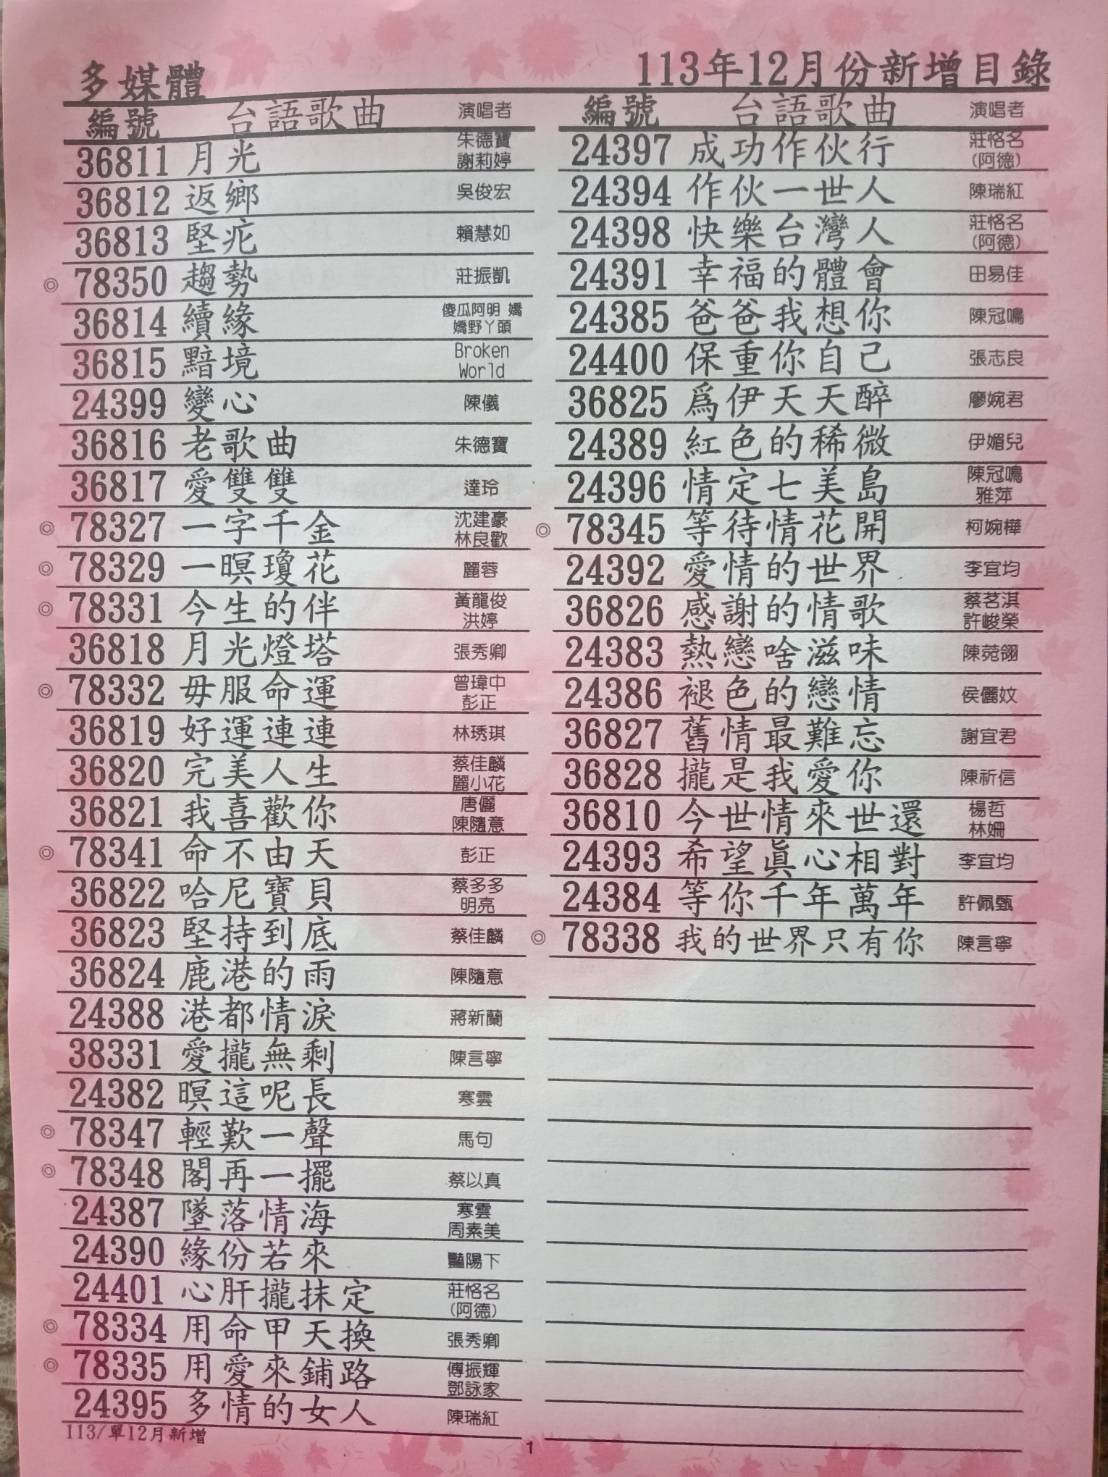 多媒體
113年12月份新增目錄
編號 台語歌曲 演唱者
36811 月光 朱德寶 謝莉婷
36812 返鄉 吳俊宏
36813 堅疕 賴慧如
◎ 78350 趨勢 莊振凱
36814 續緣 傻瓜阿明 嬌嬌野丫頭
36815 黯境 Broken World
24399 變心 陳儀
36816 老歌曲 朱德寶
36817 愛雙雙 達玲
◎ 78327 一字千金 沈建豪 林良歡
◎ 78329 一暝瓊花 麗蓉
◎ 78331 今生的伴 黃龍俊 洪婷
36818 月光燈塔 張秀卿
◎ 78332 毋服命運 曾瑋中 彭正
36819 好運連連 林琇琪
36820 完美人生 蔡佳麟 麗小花
36821 我喜歡你 唐儷 陳隨意
◎ 78341 命不由天 彭正
36822 哈尼寶貝 蔡多多 明亮
36823 堅持到底 蔡佳麟
36824 鹿港的雨 陳隨意
24388 港都情淚 蔣新蘭
38331 愛攏無剩 陳言寧
24382 暝這呢長 寒雲
◎ 78347 輕歎一聲 馬句
◎ 78348 閣再一擺 蔡以真
24387 墜落情海 寒雲 周素美
24390 緣份若來 豔陽下
24401 心肝攏抹定 莊恪名 (阿德)
◎ 78334 用命甲天換 張秀卿
◎ 78335 用愛來鋪路 傅振輝 鄧詠家
24395 多情的女人 陳瑞紅
113/單12月新增
編號 台語歌曲 演唱者
24397 成功作伙行 莊恪名 (阿德)
24394 作伙一世人 陳瑞紅
24398 快樂台灣人 莊恪名 (阿德)
24391 幸福的體會 田易佳
24385 爸爸我想你 陳冠鳴
24400 保重你自己 張志良
36825 為伊天天醉 廖婉君
24389 紅色的稀微 伊媚兒
24396 情定七美島 陳冠鳴 雅萍
◎ 78345 等待情花開 柯婉樺
24392 愛情的世界 李宜均
36826 感謝的情歌 蔡茗淇 許峻榮
24383 熱戀啥滋味 陳菀翎
24386 褪色的戀情 侯儷妏
36827 舊情最難忘 謝宜君
36828 攏是我愛你 陳祈信
36810 今世情來世還 楊哲 林姍
24393 希望真心相對 李宜均
24384 等你千年萬年 許佩甄
◎ 78338 我的世界只有你 陳言寧
1